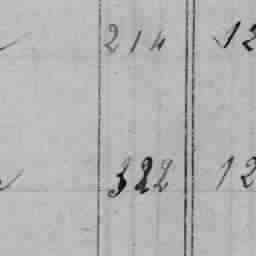 214 12
322 12